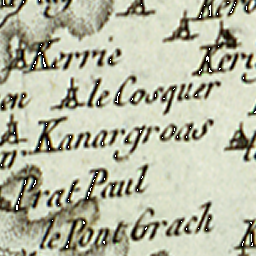 Kerrie
le Cosquer
Kanargroas
Prat Paul
le Pont Grach